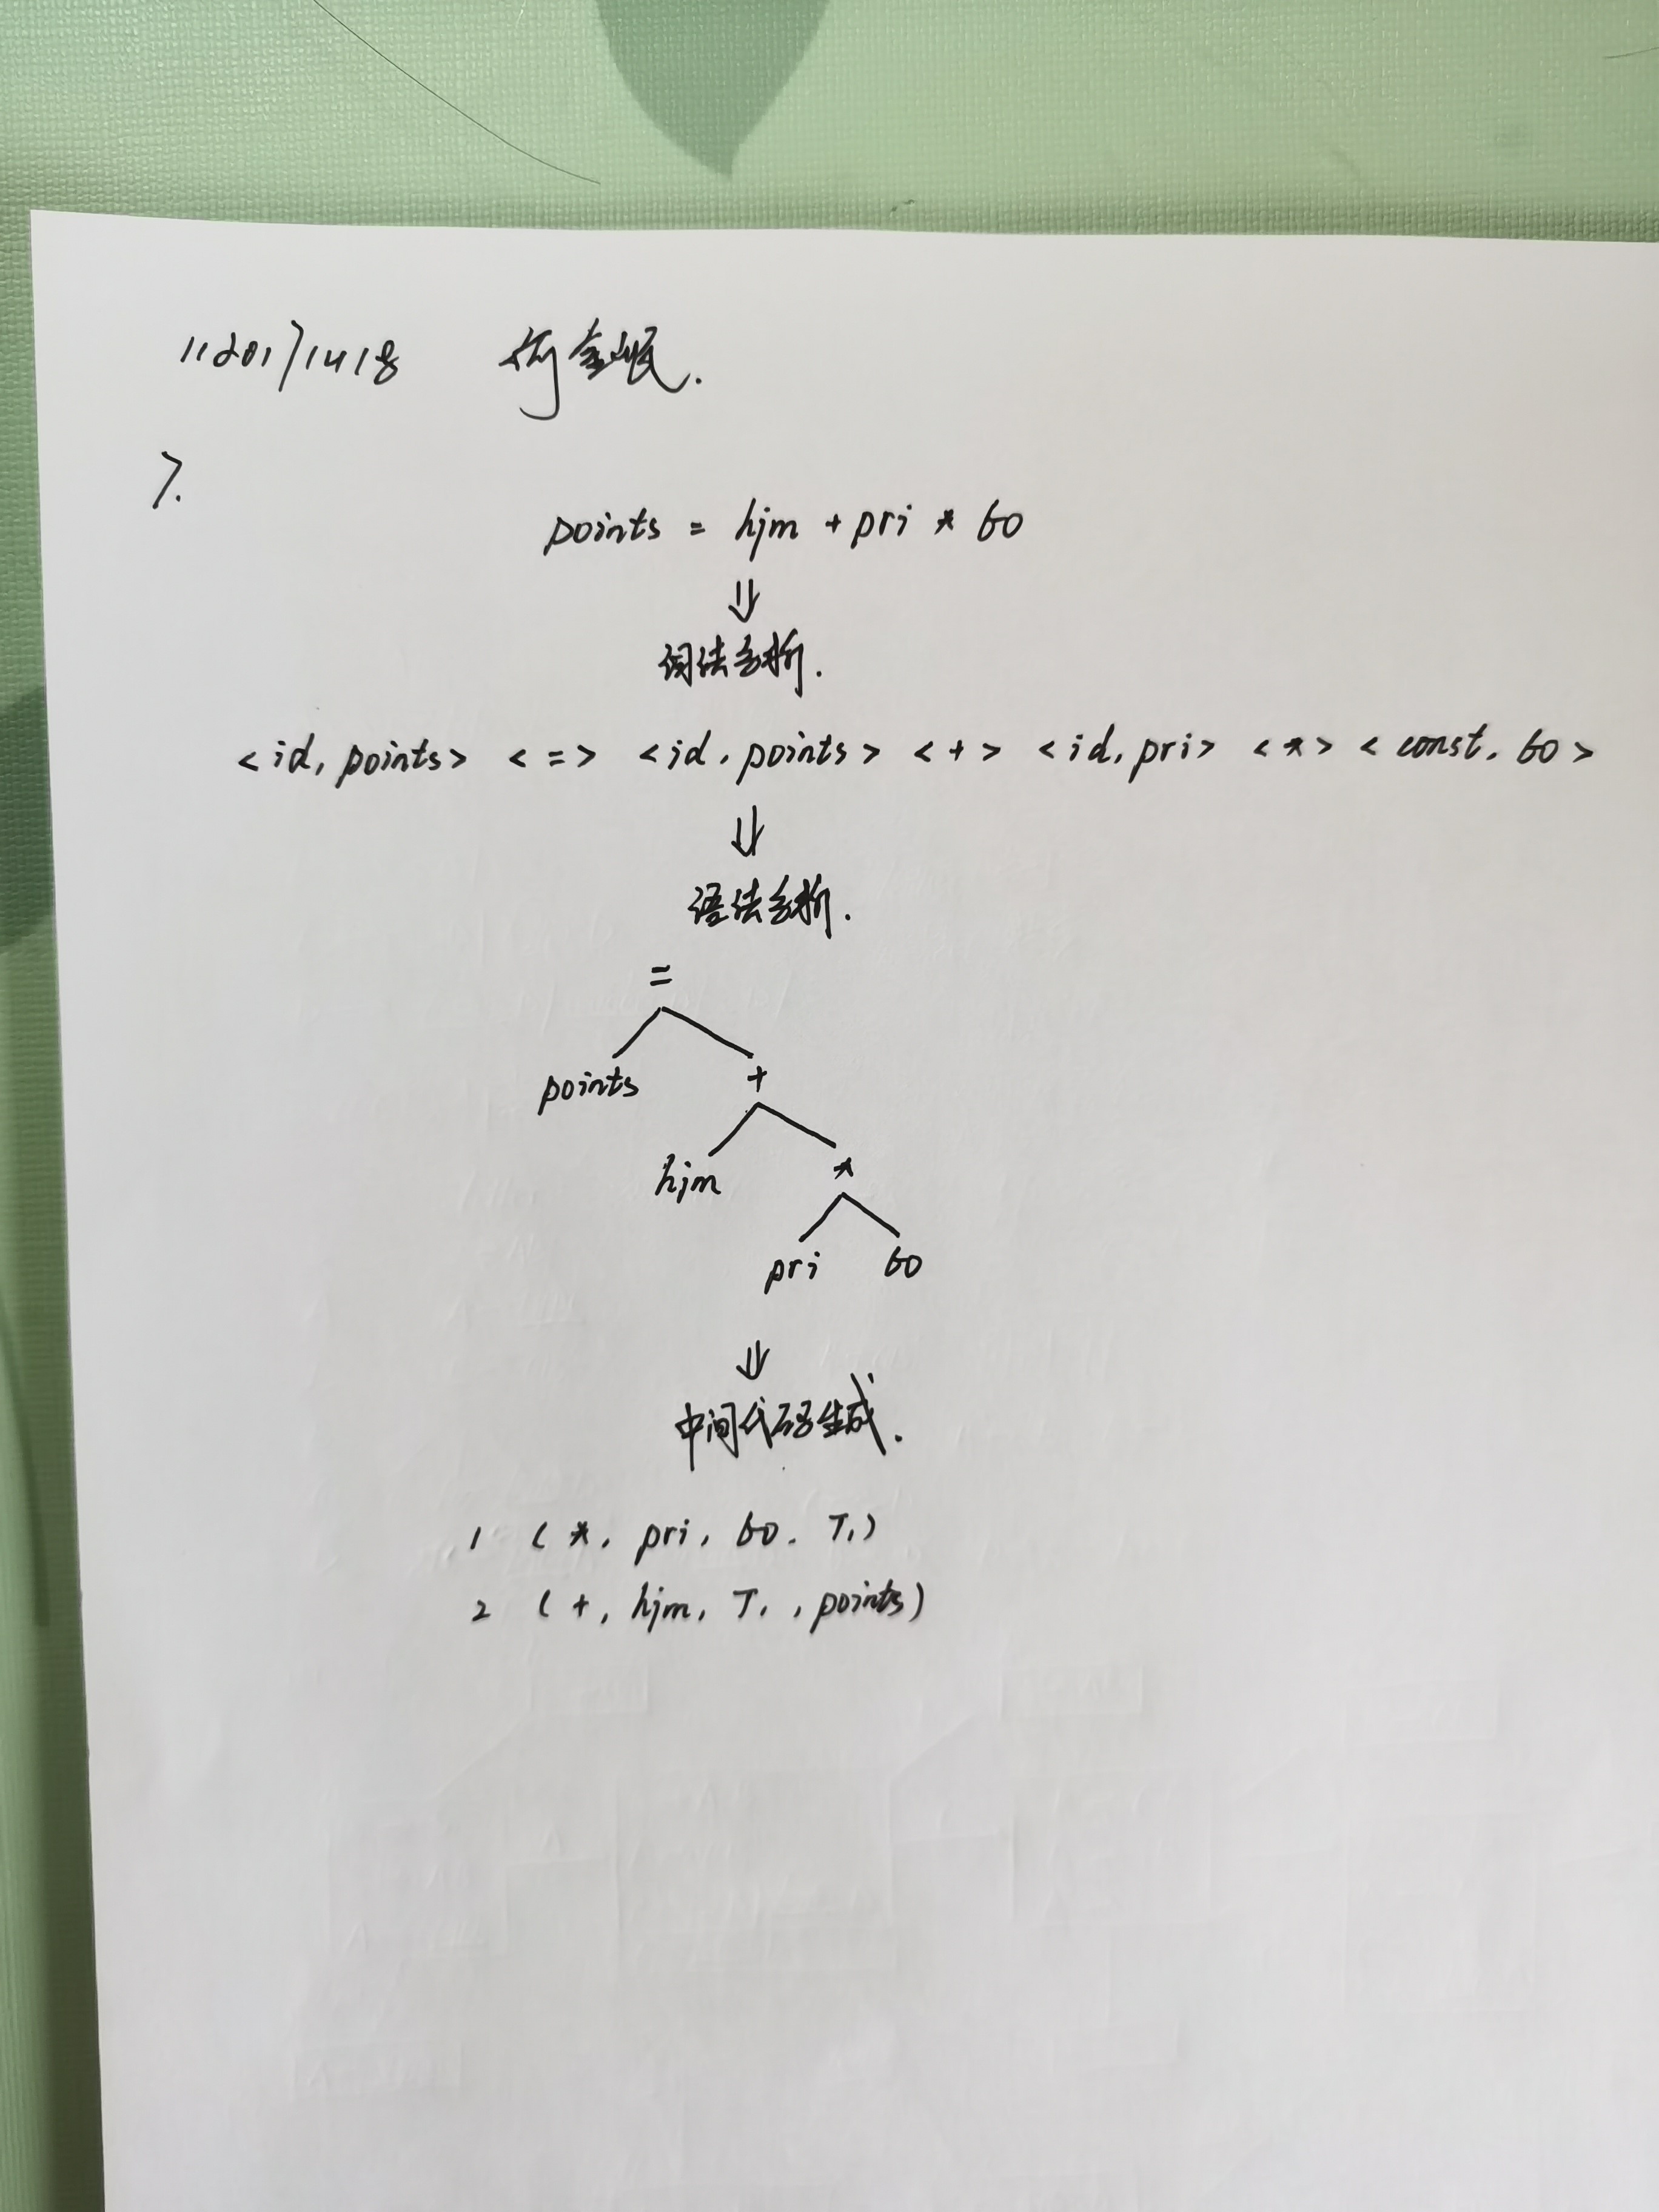 1120171418 何金岷.
7.
points = hjm + pri * 60
⇓
词法分析.
<id, points> <=> <id, points> <+> <id, pri> <*> <const, 60>
⇓
语法分析.
=
points +
hjm *
pri 60
⇓
中间代码生成.
1 (*, pri, 60, T₁)
2 (+, hjm, T₁, points)